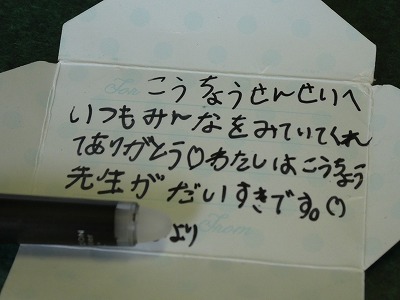 こうちょうせんせいへ
いつもみんなをみていてくれ
てありがとう♡わたしはこうちょう
先生がだいすきです。♡
より
From